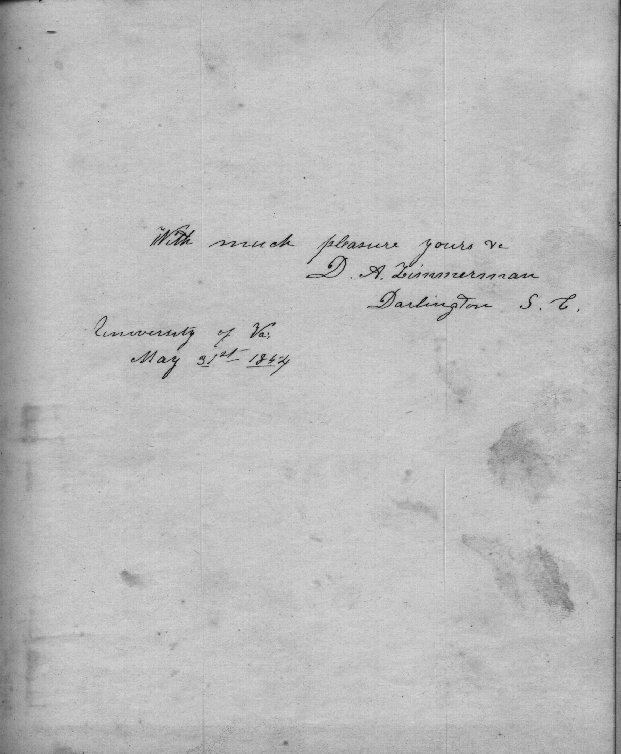 With much pleasure yours &c
D. A. Zimmerman
Darlington S. C.
University of Va;
May 31st